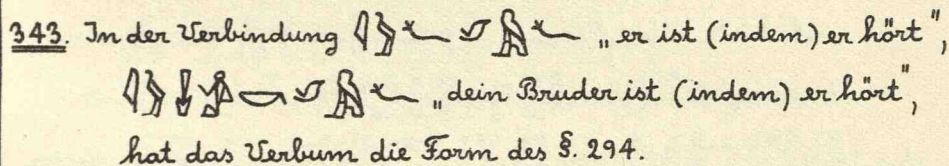 343. In der Verbindung 𓇋𓅱𓆑𓄔𓅓𓆑 „er ist (indem) er hört",
𓇋𓅱𓌢𓀀𓎡𓄔𓅓𓆑 „dein Bruder ist (indem) er hört",
hat das Verbum die Form des §. 294.